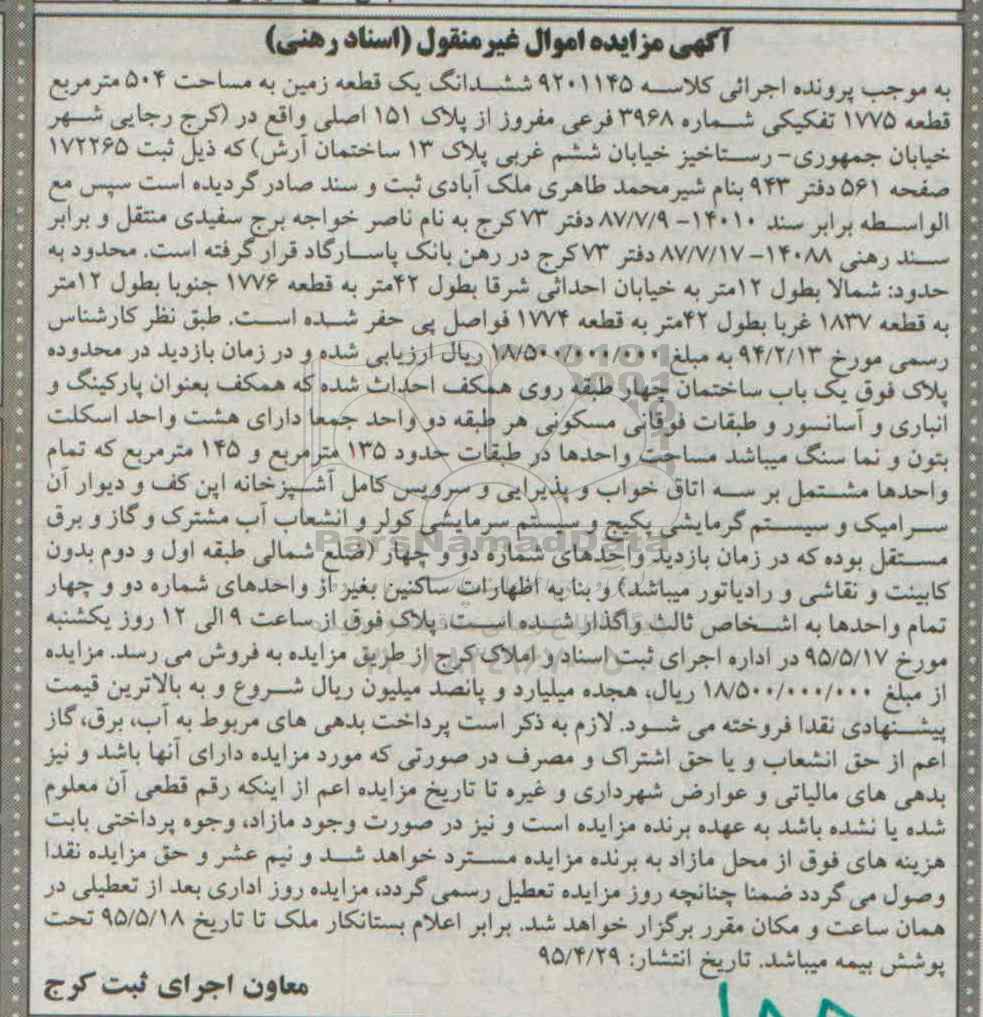 آگهی مزایده اموال غیرمنقول (اسناد رهنی)
به موجب پرونده اجرائی کلاسه ۹۲۰۱۱۴۵ ششدانگ یک قطعه زمین به مساحت ۵۰۴ مترمربع
قطعه ۱۷۷۵ تفکیکی شماره ۳۹۶۸ فرعی مفروز از پلاک ۱۵۱ اصلی واقع در (کرج رجایی شهر
خیابان جمهوری- رستاخیز خیابان ششم غربی پلاک ۱۳ ساختمان آرش) که ذیل ثبت ۱۷۲۲۶۵
صفحه ۵۶۱ دفتر ۹۴۳ بنام شیرمحمد طاهری ملک آبادی ثبت و سند صادر گردیده است سپس مع
الواسطه برابر سند ۱۴۰۱۰- ۸۷/۷/۹ دفتر ۷۳ کرج به نام ناصر خواجه برج سفیدی منتقل و برابر
سند رهنی ۱۴۰۸۸- ۸۷/۷/۱۷ دفتر ۷۳ کرج در رهن بانک پاسارگاد قرار گرفته است. محدود به
حدود: شمالا بطول ۱۲متر به خیابان احداثی شرقا بطول ۴۲متر به قطعه ۱۷۷۶ جنوبا بطول ۱۲متر
به قطعه ۱۸۳۷ غربا بطول ۴۲متر به قطعه ۱۷۷۴ فواصل پی حفر شده است. طبق نظر کارشناس
رسمی مورخ ۹۴/۲/۱۳ به مبلغ ۱۸/۵۰۰/۰۰۰/۰۰۰ ریال ارزیابی شده و در زمان بازدید در محدوده
پلاک فوق یک باب ساختمان چهار طبقه روی همکف احداث شده که همکف بعنوان پارکینگ و
انباری و آسانسور و طبقات فوقانی مسکونی هر طبقه دو واحد جمعا دارای هشت واحد اسکلت
بتون و نما سنگ میباشد مساحت واحدها در طبقات حدود ۱۳۵ مترمربع و ۱۴۵ مترمربع که تمام
واحدها مشتمل بر سه اتاق خواب و پذیرایی و سرویس کامل آشپزخانه اپن کف و دیوار آن
سرامیک و سیستم گرمایشی پکیج و سیستم سرمایشی کولر و انشعاب آب مشترک و گاز و برق
مستقل بوده که در زمان بازدید واحدهای شماره دو و چهار (ضلع شمالی طبقه اول و دوم بدون
کابینت و نقاشی و رادیاتور میباشد) و بنا به اظهارات ساکنین بغیر از واحدهای شماره دو و چهار
تمام واحدها به اشخاص ثالث واگذار شده است، پلاک فوق از ساعت ۹ الی ۱۲ روز یکشنبه
مورخ ۹۵/۵/۱۷ در اداره اجرای ثبت اسناد و املاک کرج از طریق مزایده به فروش می رسد. مزایده
از مبلغ ۱۸/۵۰۰/۰۰۰/۰۰۰ ریال، هجده میلیارد و پانصد میلیون ریال شروع و به بالاترین قیمت
پیشنهادی نقدا فروخته می شود. لازم به ذکر است پرداخت بدهی های مربوط به آب، برق، گاز
اعم از حق انشعاب و یا حق اشتراک و مصرف در صورتی که مورد مزایده دارای آنها باشد و نیز
بدهی های مالیاتی و عوارض شهرداری و غیره تا تاریخ مزایده اعم از اینکه رقم قطعی آن معلوم
شده یا نشده باشد به عهده برنده مزایده است و نیز در صورت وجود مازاد، وجوه پرداختی بابت
هزینه های فوق از محل مازاد به برنده مزایده مسترد خواهد شد و نیم عشر و حق مزایده نقدا
وصول می گردد ضمنا چنانچه روز مزایده تعطیل رسمی گردد، مزایده روز اداری بعد از تعطیلی در
همان ساعت و مکان مقرر برگزار خواهد شد. برابر اعلام بستانکار ملک تا تاریخ ۹۵/۵/۱۸ تحت
پوشش بیمه میباشد. تاریخ انتشار: ۹۵/۴/۲۹
معاون اجرای ثبت کرج
ParsNamadData